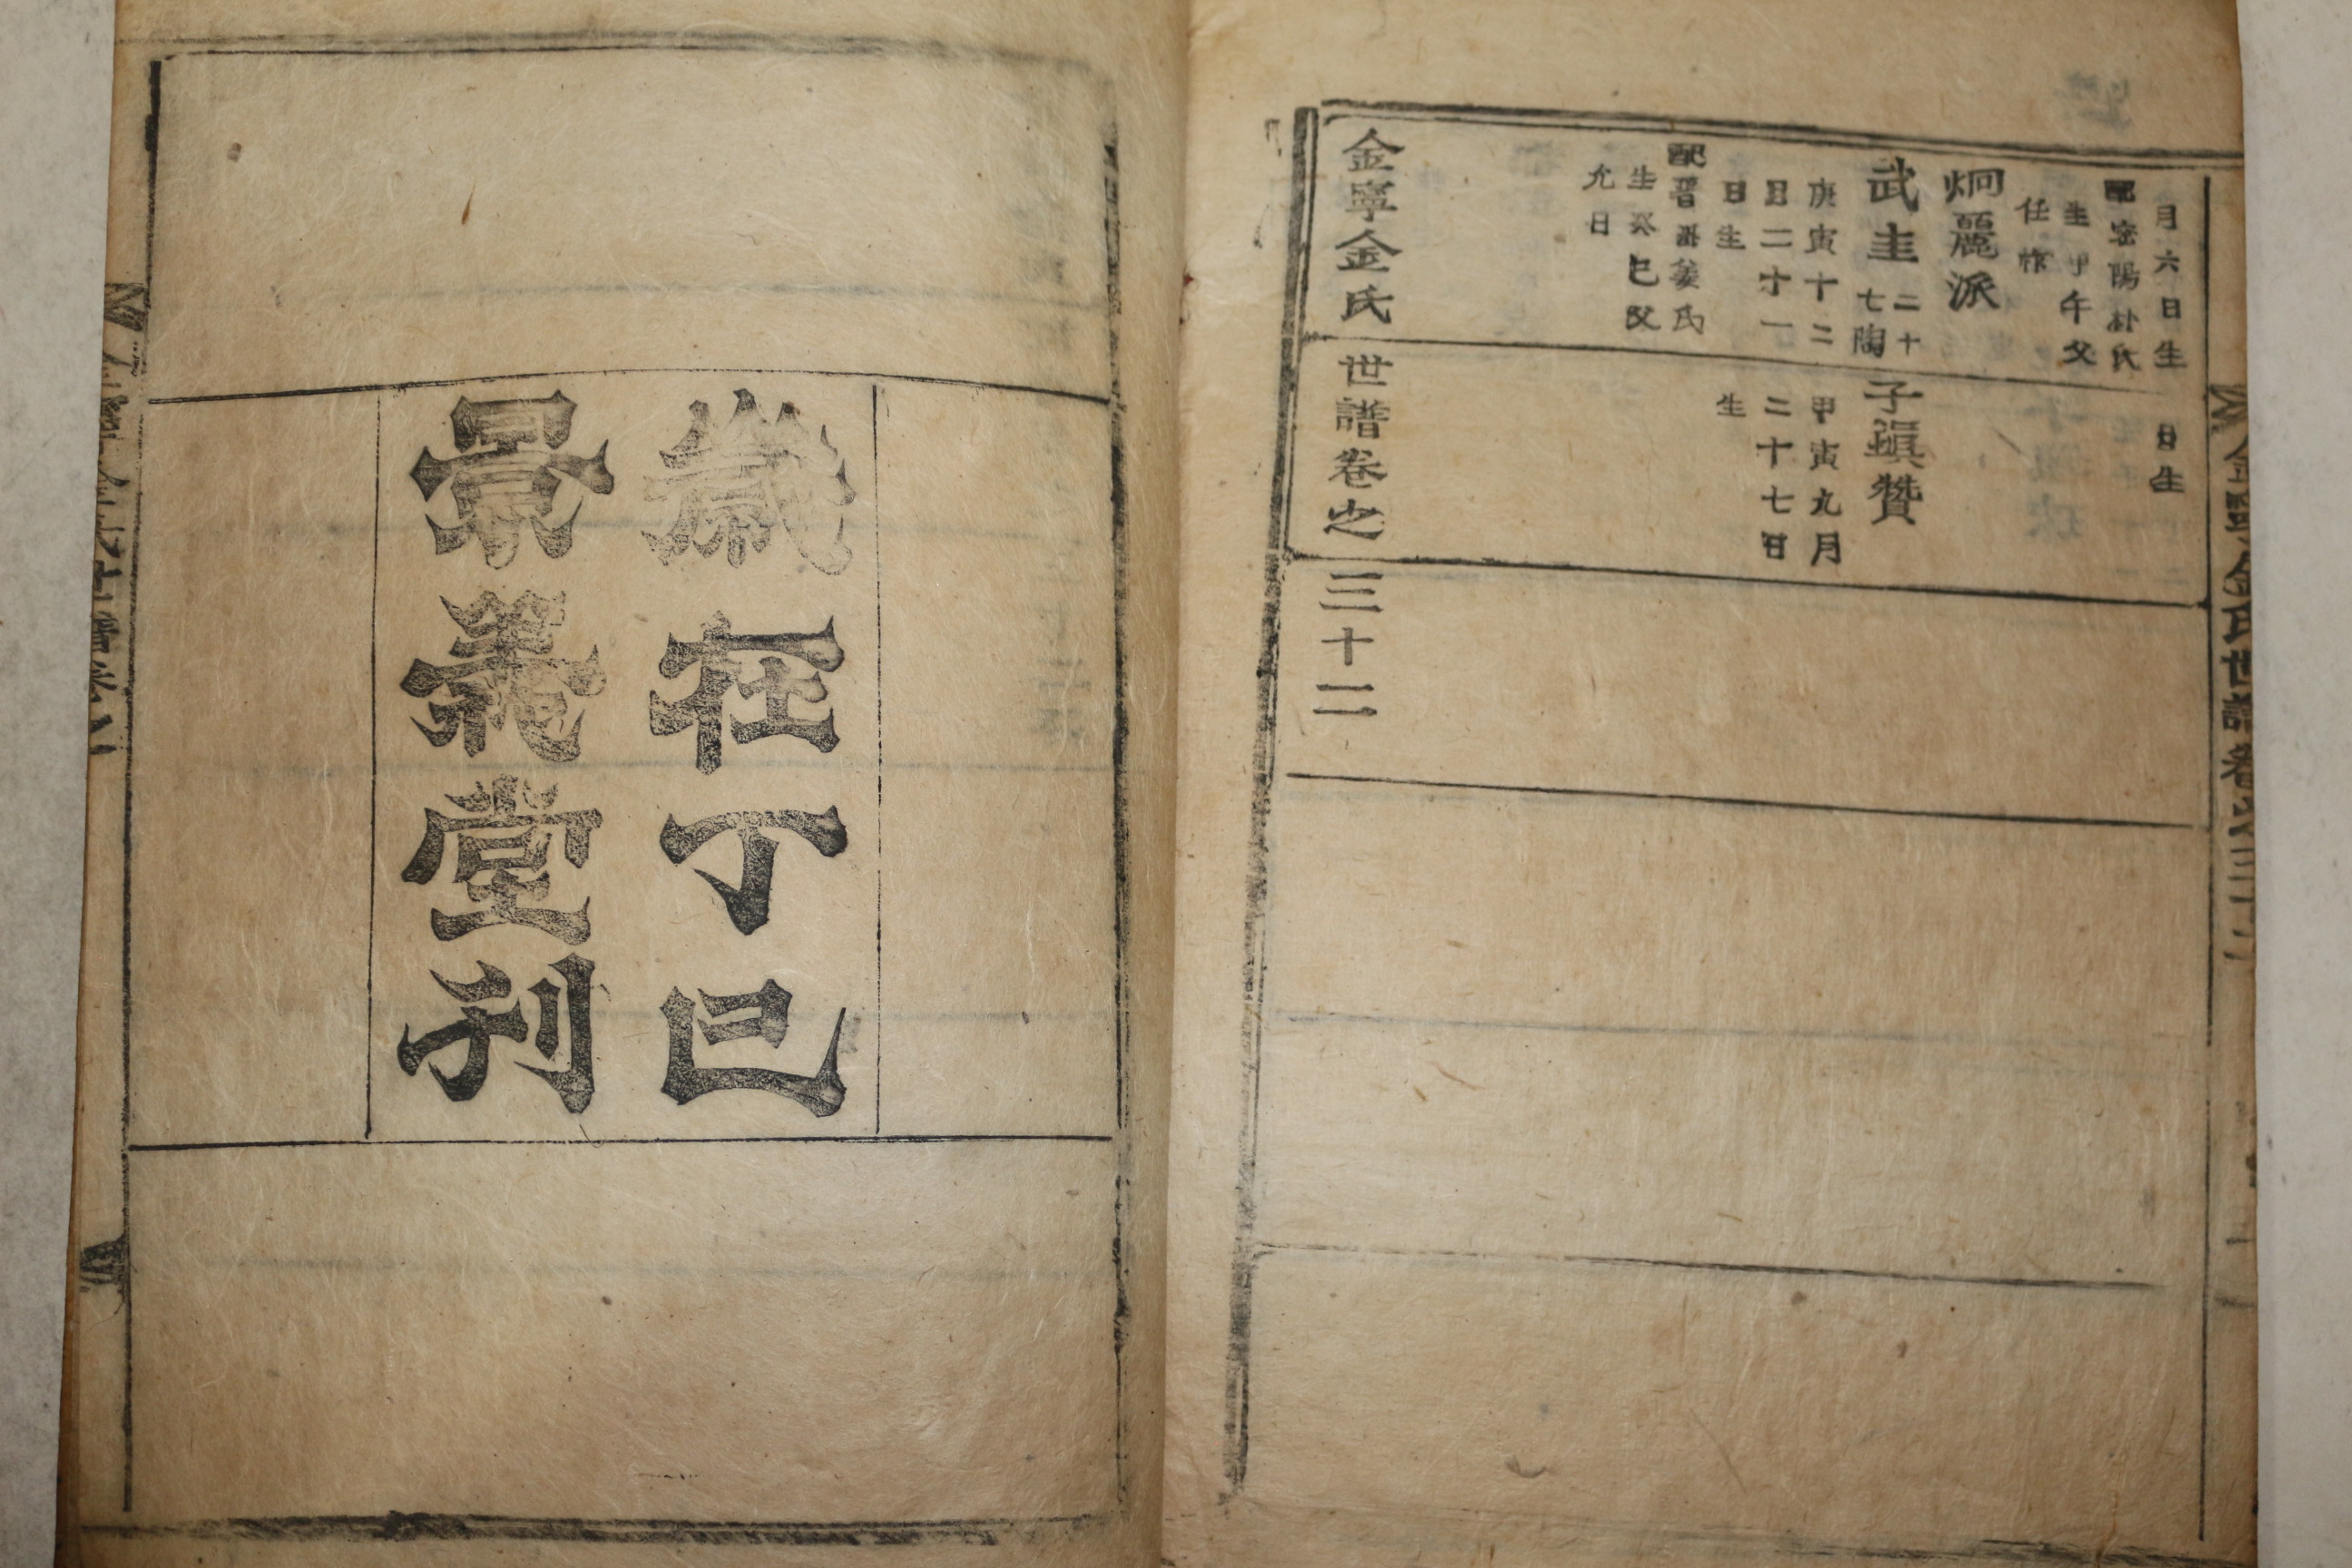 月六日生
配密陽朴氏
生甲午父
任
日生
炯麗派
武圭 二十
七陶
庚寅十二
月二十一
日生
配晋州姜氏
生癸巳父
允日
子瑱贊
甲寅九月
二十七日
生
金寧金氏世譜卷之三十二
歲在丁巳
景義堂刊
金寧金氏世譜卷之三十二